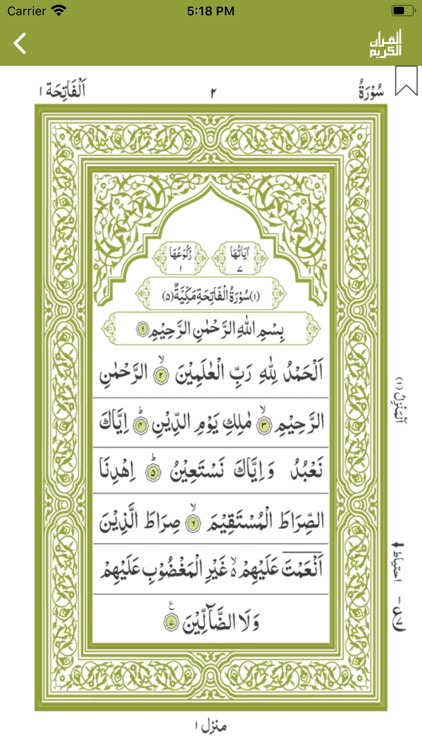 Carrier 5:18 PM
القرآن الكريم
سُوْرَةُ ٢ اَلْفَاتِحَة ١
اٰيَاتُهَا ٧ رُكُوْعُهَا ١
(١) سُوْرَةُ الْفَاتِحَةِ مَكِّيَّةٌ (٥)
بِسْمِ اللّٰهِ الرَّحْمٰنِ الرَّحِيْمِ
اَلْحَمْدُ لِلّٰهِ رَبِّ الْعٰلَمِيْنَ ۙ ٢ الرَّحْمٰنِ
الرَّحِيْمِ ۙ ٣ مٰلِكِ يَوْمِ الدِّيْنِ ؕ ٤ اِيَّاكَ
نَعْبُدُ وَ اِيَّاكَ نَسْتَعِيْنُ ؕ ٥ اِهْدِنَا
الصِّرَاطَ الْمُسْتَقِيْمَ ۙ ٦ صِرَاطَ الَّذِيْنَ
اَنْعَمْتَ عَلَيْهِمْ ۙ۬ غَيْرِ الْمَغْضُوْبِ عَلَيْهِمْ
وَلَا الضَّآلِّيْنَ ٧ ع
اَلْمَنْزِلُ (١)
احتياط
منزل ١